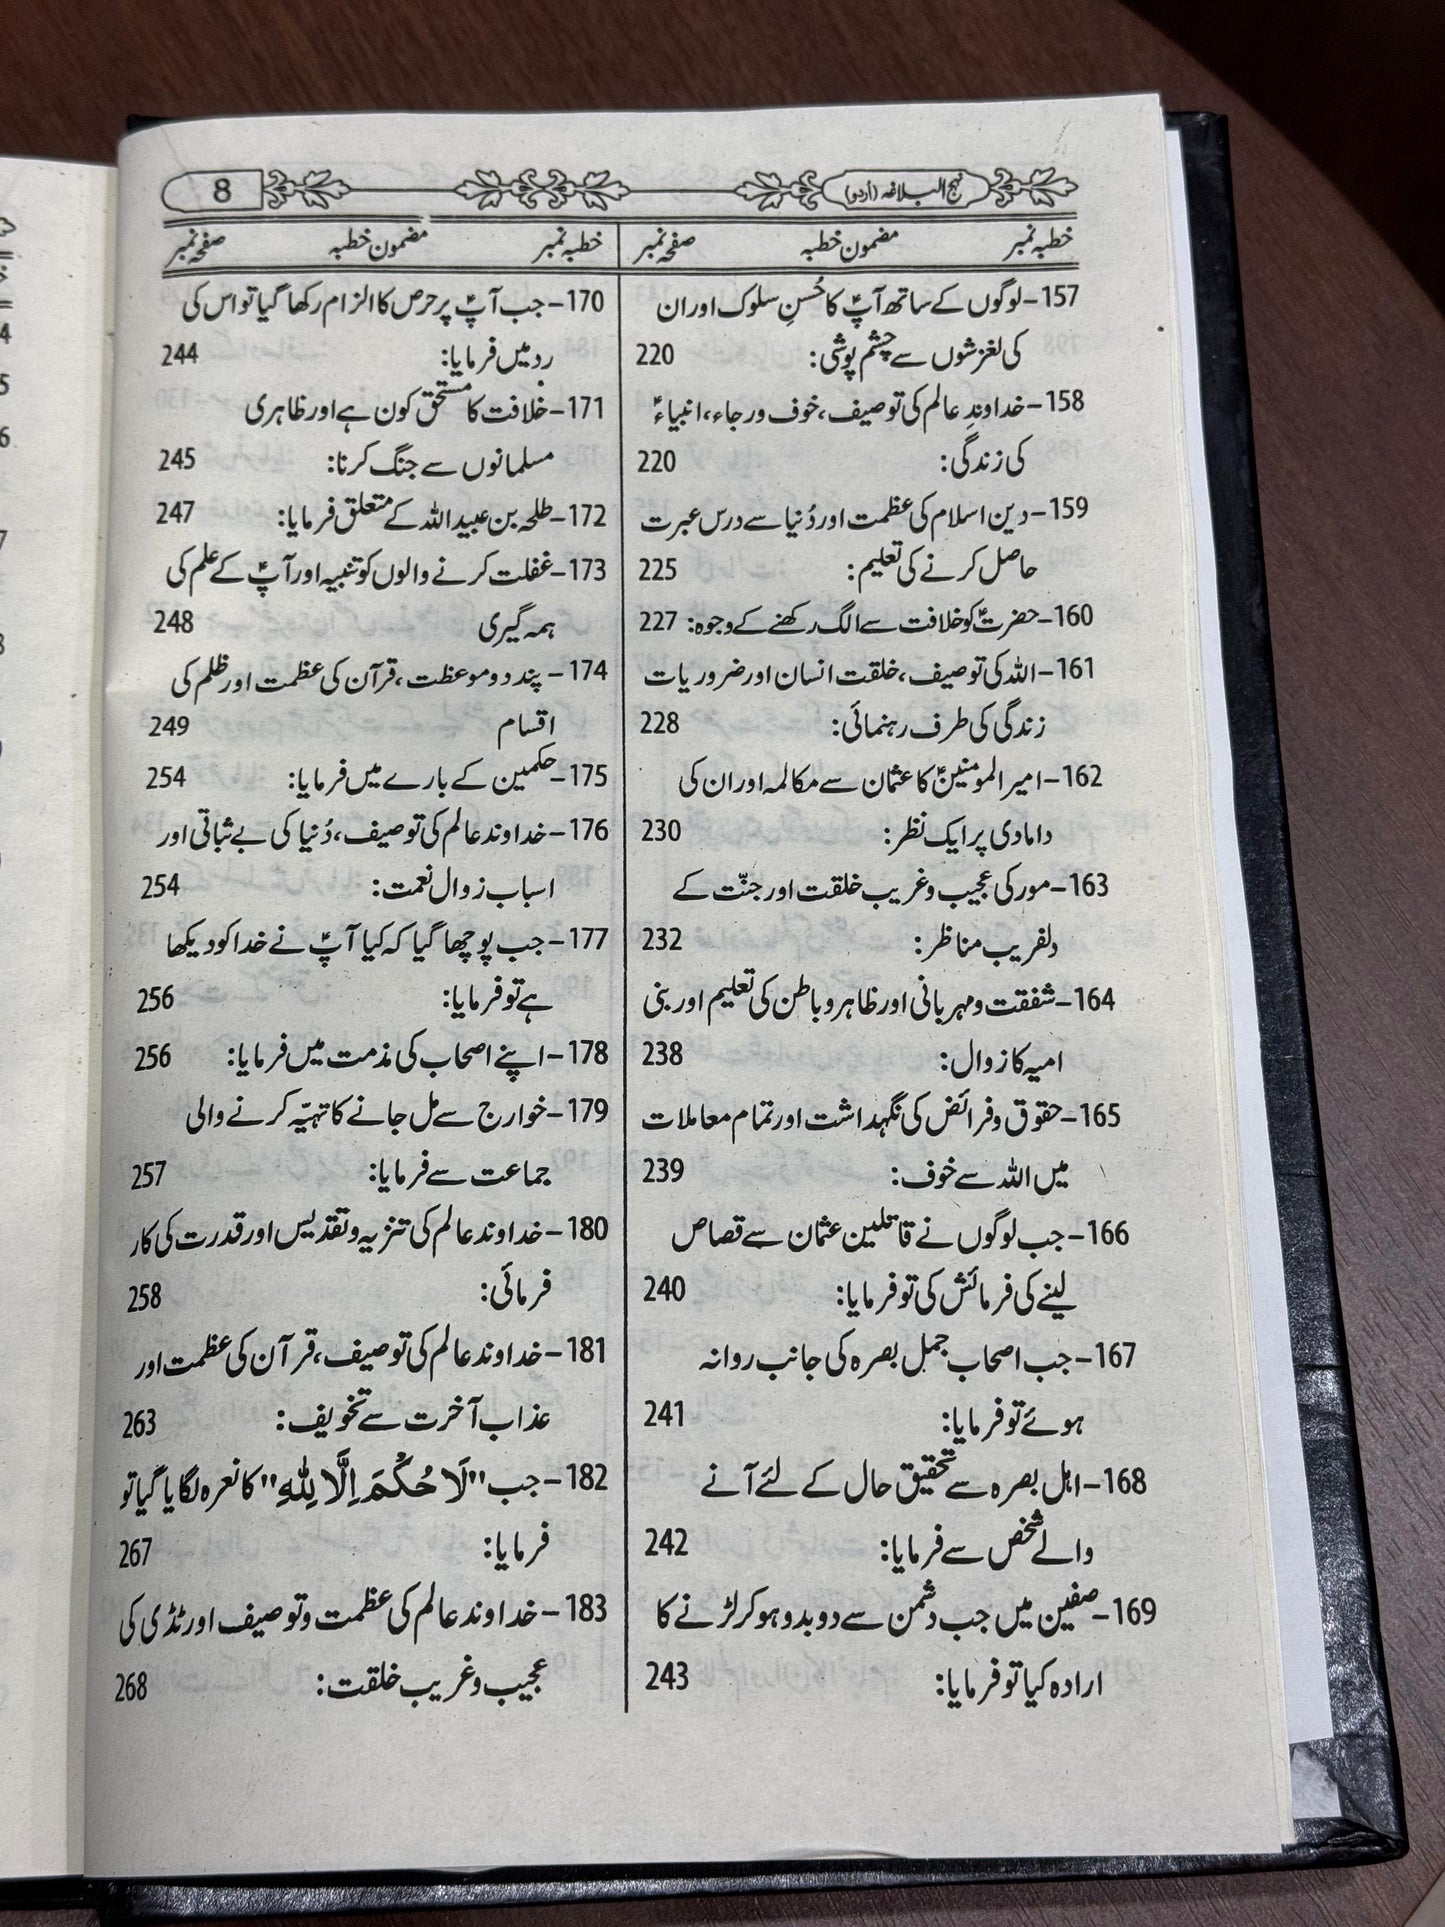 نہج البلاغہ (اُردو)
8
خطبہ نمبر مضمون خطبہ صفحہ نمبر
157-لوگوں کے ساتھ آپؑ کا حُسنِ سلوک اور ان
کی لغزشوں سے چشم پوشی: 220
158-خداوندِ عالم کی توصیف، خوف ورجاء، انبیاءؑ
کی زندگی: 220
159-دین اسلام کی عظمت اور دُنیا سے درس عبرت
حاصل کرنے کی تعلیم: 225
160-حضرتؑ کو خلافت سے الگ رکھنے کے وجوہ: 227
161-اللہ کی توصیف، خلقت انسان اور ضروریات
زندگی کی طرف رہنمائی: 228
162-امیر المومنینؑ کا عثمان سے مکالمہ اور ان کی
دامادی پر ایک نظر: 230
163-مور کی عجیب و غریب خلقت اور جنّت کے
دلفریب مناظر: 232
164-شفقت و مہربانی اور ظاہر و باطن کی تعلیم اور بنی
امیہ کا زوال: 238
165-حقوق و فرائض کی نگہداشت اور تمام معاملات
میں اللہ سے خوف: 239
166-جب لوگوں نے قاتلین عثمان سے قصاص
لینے کی فرمائش کی تو فرمایا: 240
167-جب اصحاب جمل بصرہ کی جانب روانہ
ہوئے تو فرمایا: 241
168-اہل بصرہ سے تحقیق حال کے لئے آنے
والے شخص سے فرمایا: 242
169-صفین میں جب دشمن سے دوبدو ہو کر لڑنے کا
ارادہ کیا تو فرمایا: 243
خطبہ نمبر مضمون خطبہ صفحہ نمبر
170-جب آپؑ پر حرص کا الزام رکھا گیا تو اس کی
رد میں فرمایا: 244
171-خلافت کا مستحق کون ہے اور ظاہری
مسلمانوں سے جنگ کرنا: 245
172-طلحہ بن عبید اللہ کے متعلق فرمایا: 247
173-غفلت کرنے والوں کو تنبیہ اور آپؑ کے علم کی
ہمہ گیری 248
174-پند دو موعظت، قرآن کی عظمت اور ظلم کی
اقسام 249
175-حکمین کے بارے میں فرمایا: 254
176-خداوند عالم کی توصیف، دُنیا کی بے ثباتی اور
اسباب زوال نعمت: 254
177-جب پوچھا گیا کہ کیا آپؑ نے خدا کو دیکھا
ہے تو فرمایا: 256
178-اپنے اصحاب کی مذمت میں فرمایا: 256
179-خوارج سے مل جانے کا تہیّہ کرنے والی
جماعت سے فرمایا: 257
180-خداوند عالم کی تنزیہ و تقدیس اور قدرت کی کار
فرمائی: 258
181-خداوند عالم کی توصیف، قرآن کی عظمت اور
عذاب آخرت سے تخویف: 263
182-جب "لَا حُکْمَ اِلَّا لِلّٰہِ" کا نعرہ لگایا گیا تو
فرمایا: 267
183-خداوند عالم کی عظمت و توصیف اور ٹڈی کی
عجیب و غریب خلقت: 268